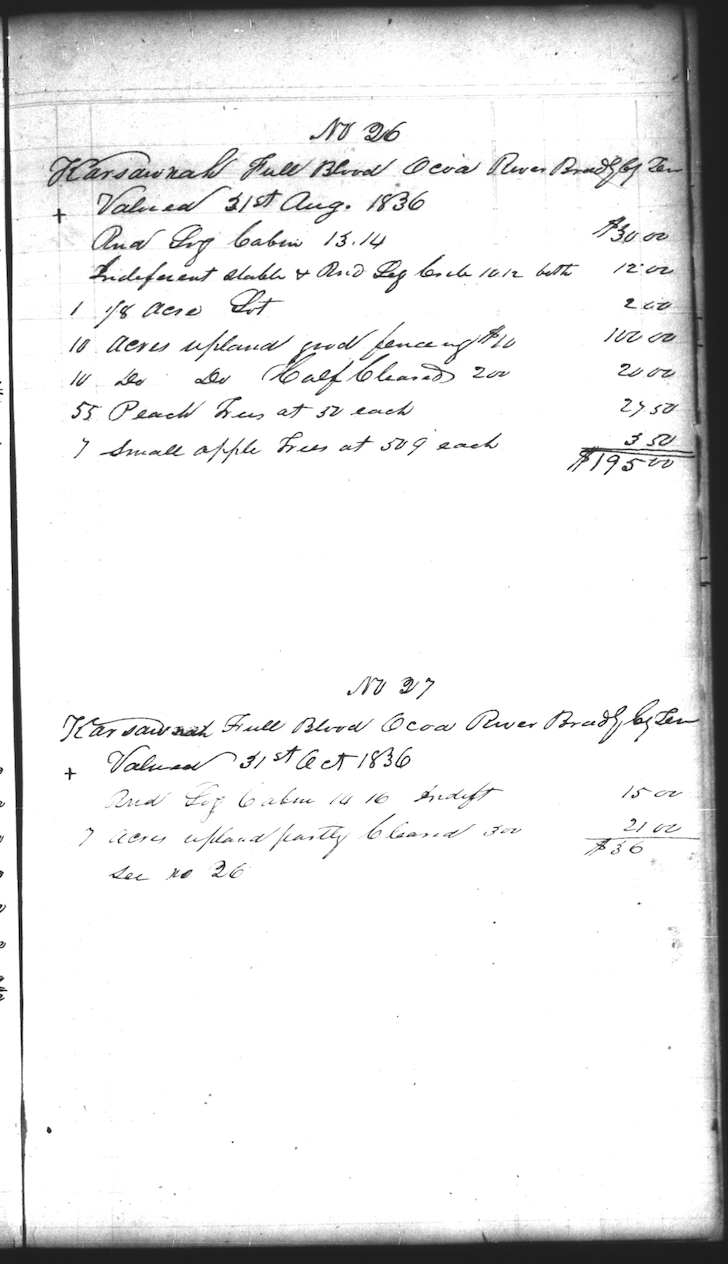 No 26
Karsawnah Full Blood Ocoa River Bradly Cy Ten
+ Valued 31st Aug. 1836
Rnd Log Cabin 13.14 $30 00
Indeferent stable & Rnd Log Crib 10 12 both 12 00
1 1/8 acre Lot 2 00
10 acres upland good fencing $10 100 00
10 Do Do Half Cleared 200 20 00
55 Peach Trees at 50 each 27 50
7 Small apple Trees at 50 each 3 50
$195 00
No 27
Karsawnah Full Blood Ocoa River Bradly Cy Ten
+ Valued 31st Oct 1836
Rnd Log Cabin 14 16 Indift 15 00
7 acres upland partly Cleared 300 21 00
$36
See no 26